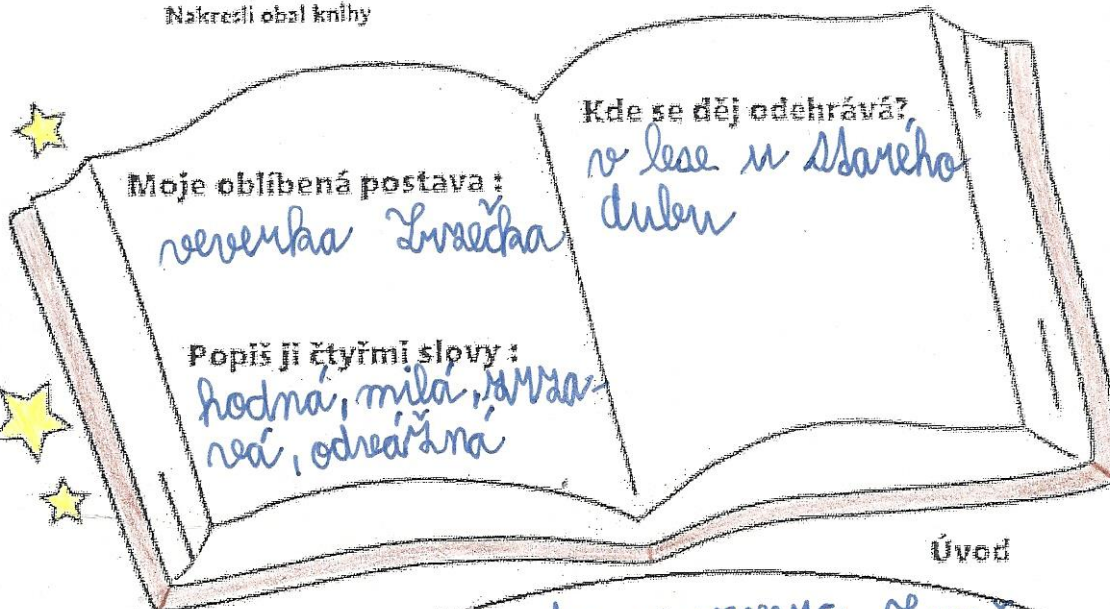 Nakresli obal knihy
Moje oblíbená postava :
veverka Zrzečka
Popiš ji čtyřmi slovy :
hodná, milá, zrza-
vá, odvážná
Kde se děj odehrává?
v lese u starého
dubu
Úvod